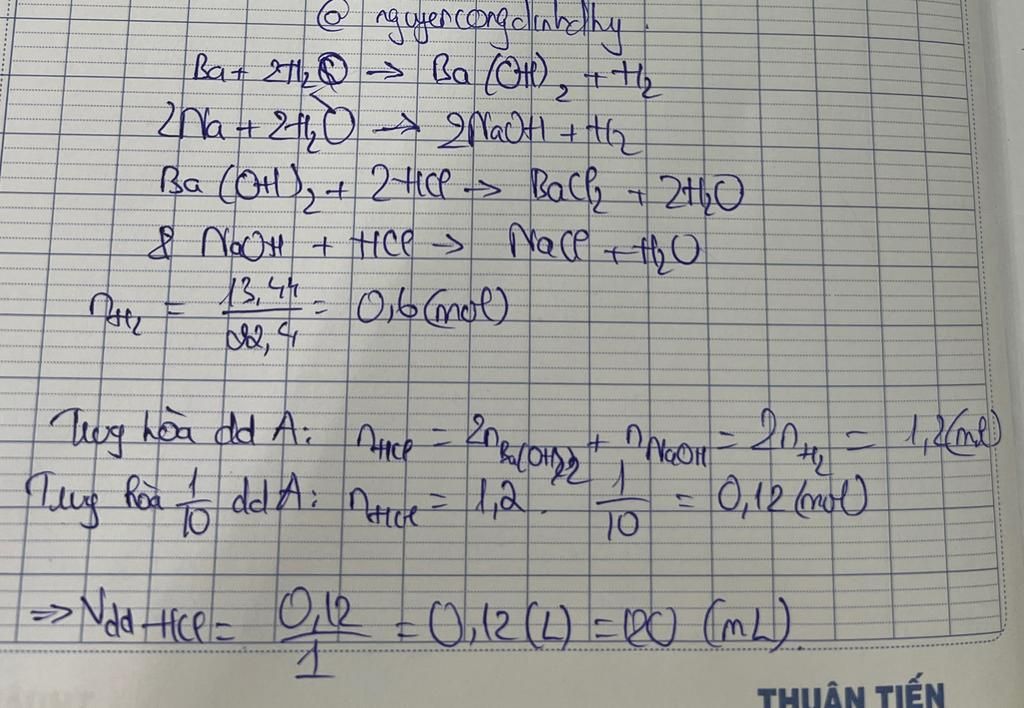 @ nguyencongdinhdhy.
Ba + 2H₂O → Ba(OH)₂ + H₂
2Na + 2H₂O → 2NaOH + H₂
Ba(OH)₂ + 2HCl → BaCl₂ + 2H₂O
NaOH + HCl → NaCl + H₂O
n_H₂ = 13,44/22,4 = 0,6 (mol)
Trung hòa dd A: n_HCl = 2n_Ba(OH)₂ + n_NaOH = 2n_H₂ = 1,2 (mol)
Trung hòa 1/10 dd A: n_HCl = 1,2 . 1/10 = 0,12 (mol)
⇒ V_dd HCl = 0,12/1 = 0,12 (L) = 120 (mL).
THUẬN TIẾN